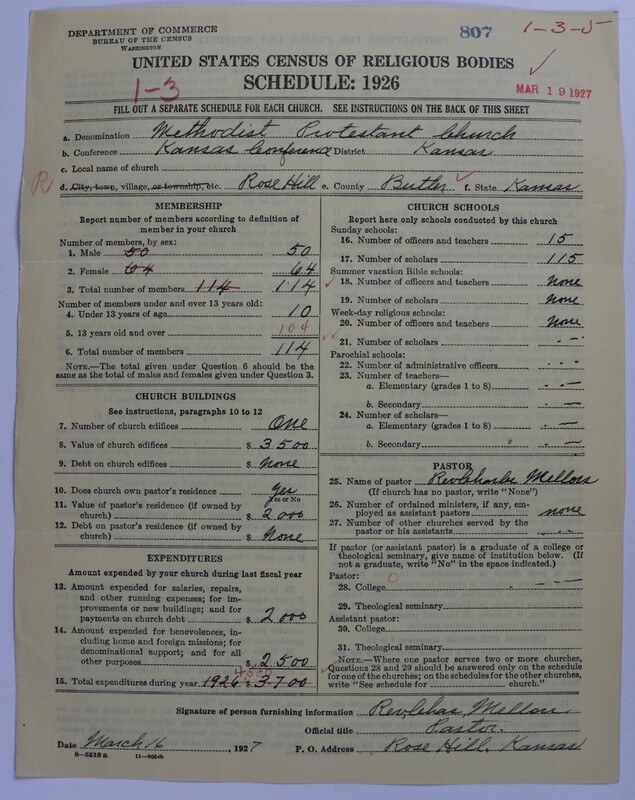 DEPARTMENT OF COMMERCE
BUREAU OF THE CENSUS
WASHINGTON
807
1-3-5
UNITED STATES CENSUS OF RELIGIOUS BODIES
1-3
SCHEDULE: 1926
MAR 19 1927
FILL OUT A SEPARATE SCHEDULE FOR EACH CHURCH. SEE INSTRUCTIONS ON THE BACK OF THIS SHEET
a. Denomination Methodist Protestant Church
b. Conference Kansas Conference District Kansas
c. Local name of church
R d. City, town, village, or township, etc. Rose Hill e. County Butler f. State Kansas
MEMBERSHIP
Report number of members according to definition of
member in your church
Number of members, by sex:
1. Male 50 50
2. Female 64 64
3. Total number of members 114 114
Number of members under and over 13 years old:
4. Under 13 years of age 10
5. 13 years old and over 104
6. Total number of members 114
NOTE.—The total given under Question 6 should be
same as the total of males and females given under Question 3.
CHURCH BUILDINGS
See instructions, paragraphs 10 to 12
7. Number of church edifices One
8. Value of church edifices $ 3500
9. Debt on church edifices $ None
10. Does church own pastor's residence Yes
Yes or No
11. Value of pastor's residence (if owned by
church) $ 2000
12. Debt on pastor's residence (if owned by
church) $ None
EXPENDITURES
Amount expended by your church during last fiscal year
13. Amount expended for salaries, repairs,
and other running expenses; for im-
provements or new buildings; and for
payments on church debt $ 2000
14. Amount expended for benevolences, in-
cluding home and foreign missions; for
denominational support; and for all
other purposes $ 2500
4500
15. Total expenditures during year 1926 $ 3700
CHURCH SCHOOLS
Report here only schools conducted by this church
Sunday schools:
16. Number of officers and teachers 15
17. Number of scholars 115
Summer vacation Bible schools:
18. Number of officers and teachers None
19. Number of scholars None
Week-day religious schools:
20. Number of officers and teachers None
21. Number of scholars
Parochial schools:
22. Number of administrative officers
23. Number of teachers—
a. Elementary (grades 1 to 8)
b. Secondary
24. Number of scholars—
a. Elementary (grades 1 to 8)
b. Secondary
PASTOR
25. Name of pastor Rev Charles Mellors
(If church has no pastor, write "None")
26. Number of ordained ministers, if any, em-
ployed as assistant pastors none
27. Number of other churches served by the
pastor or his assistants
If pastor (or assistant pastor) is a graduate of a college or
theological seminary, give name of institution below. (If
not a graduate, write "No" in the space indicated.)
Pastor:
28. College 0
29. Theological seminary
Assistant pastor:
30. College
31. Theological seminary
NOTE.—Where one pastor serves two or more churches,
Questions 28 and 29 should be answered only on the schedule
for one of the churches; on the schedules for the other churches,
write "See schedule for church."
Signature of person furnishing information Rev Chas Mellors
Official title Pastor.
Date March 16, 1927 P. O. Address Rose Hill, Kansas